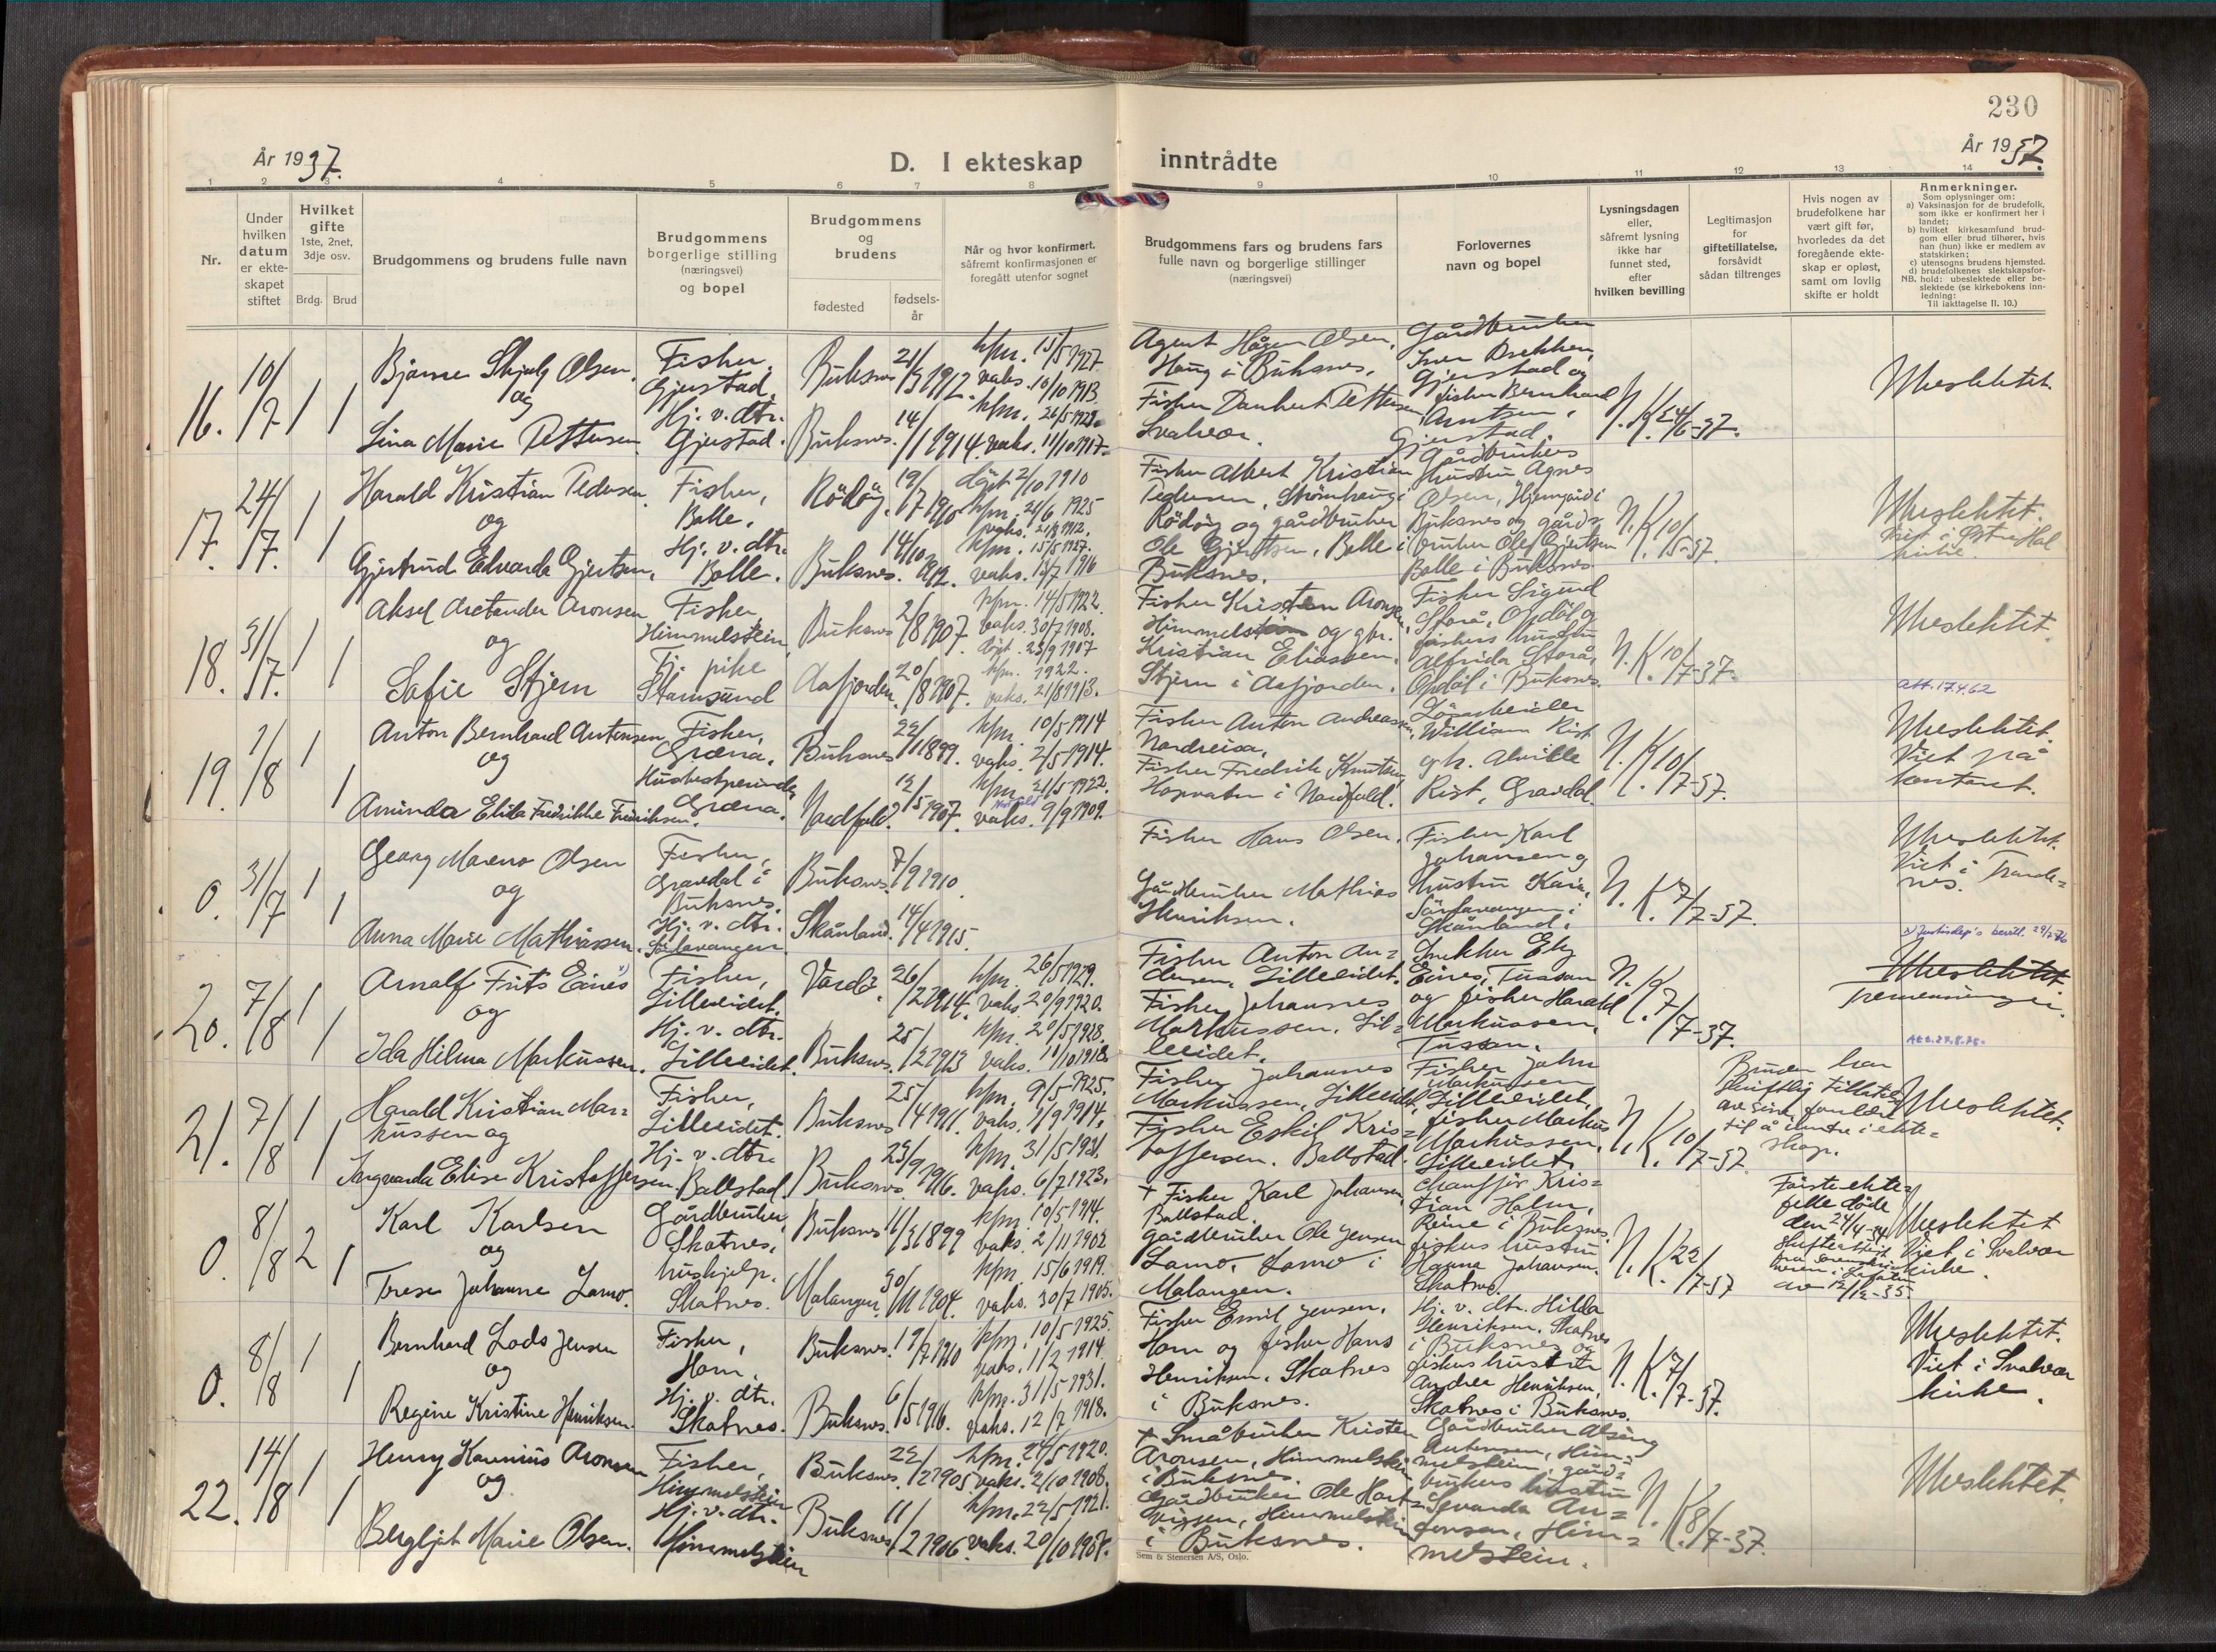 230
År 1937.
D. I ekteskap inntrådte
År 1937.
1 2 3 4 5 6 7 8 9 10 11 12 13 14
Nr.
Under hvilken datum er ekte-skapet stiftet
Hvilket gifte
1ste, 2net, 3dje osv.
Brdg. Brud
Brudgommens og brudens fulle navn
Brudgommens borgerlige stilling (næringsvei) og bopel
Brudgommens og brudens
fødested
fødsels-år
Når og hvor konfirmert, såfremt konfirmasjonen er foregått utenfor sognet
Brudgommens fars og brudens fars fulle navn og borgerlige stillinger (næringsvei)
Forlovernes navn og bopel
Lysningsdagen eller, såfremt lysning ikke har funnet sted, efter hvilken bevilling
Legitimasjon for giftetillatelse, forsåvidt sådan tiltrenges
Hvis nogen av brudefolkene har vært gift før, hvorledes da det foregående ekte-skap er opløst, samt om lovlig skifte er holdt
Anmerkninger.
Som oplysninger om:
a) Vaksinasjon for de brudefolk, som ikke er konfirmert her i landet;
b) hvilket kirkesamfund brud-gom eller brud tilhører, hvis han (hun) ikke er medlem av statskirken;
c) utensogns brudens hjemsted.
d) brudefolkenes slektskapsfor-hold: ubeslektede eller be-slektede (se kirkebokens inn-ledning:
NB.
Til iakttagelse II. 10.)
16. 10/7 1 1
Bjarne Skjelg Olsen og
Lina Marie Pettersen
Fisker, Gjerstad.
Hj. v. dtr. Gjerstad.
Buksnes 21/3 1912.
Buksnes. 14/1 1914.
kfm. 15/5 1927. vaks. 10/10 1913.
vaks. 11/10 1917.
Agent Håger Olsen, Haug i Buksnes.
Fisker Danhert Pettersen Svalvær.
Gårdbruker Iver Brekken, Gjerstad og fisker Bernhard Arntsen, Gjerstad.
N.K. 24/6-37.
Ubeslektet.
17. 24/7. 1 1
Harald Kristian Pedersen og
Gjertrud Edvarda Gjertsen.
Fisker, Balle.
Hj. v. dtr. Balle.
Rödöy. 19/7 1910
Buksnes. 14/10 1912.
döpt 2/10 1910
kfm. 21/6 1925
kfm. 15/5 1927.
vaks. 13/7 1916
Fisker Albert Kristian Pedersen, Strömhaug i Rödöy og gårdbruker Ole Gjertsen, Balle i Buksnes.
Gårdbrukers hustru Agnes Olsen, Hjemgård i Buksnes og gårdbruker Olef Gjertsen Balle i Buksnes
N.K. 10/5-37.
Ubeslektet.
18. 31/7. 1 1
Aksel Aretander Aronsen og
Sofie Stjern
Fisker, Himmelstein,
Tj. pike Stamsund
Buksnes 2/8 1907.
Aafjorden. 20/8 1907.
kfm. 14/5 1922.
vaks. 30/7 1908.
döpt. 23/9 1907
kfm. 1922.
vaks. 21/8 1913.
Fisker Kristen Aronsen, Himmelstein og gbr. Kristian Eliassen, Stjern i Aafjorden.
Fisker Sigurd Storå, Opdöl og fiskers hustru Alfrida Storå, Opdöl i Buksnes.
N.K. 10/7-37.
Ubeslektet.
att. 17.4.62
19. 1/8 1 1
Anton Bernhard Antonsen og
Aminda Elida Fredrikke Fredriksen.
Fisker, Græna.
Husbestyrerinde, Græna.
Buksnes 22/1 1899.
Nordfold. 12/5 1907.
kfm. 10/5 1914
vaks. 2/5 1914.
kfm. 21/5 1922.
vaks. 9/9 1909.
Fisker Anton Andreassen, Nordreisa.
Fisker Fredrik Knutsen, Hopvatn i Nordfold.
William Rist
Rist, Gravdal
N.K. 10/7-37.
Ubeslektet.
Viet på kontoret.
0. 31/7 1 1
Georg Marenus Olsen og
Anna Marie Mathiassen.
Fisker, Gravdal i Buksnes.
Hj. v. dtr.
Buksnes. 7/9 1910.
Skånland. 14/4 1915.
Fisker Hans Olsen.
Gårdbruker Mathias Henriksen.
Fisker Karl Johansen og hustru Kaia, Sörfavangen i Skånland i
N.K. 7/7-37.
Ubeslektet.
Viet i Trande=nes.
20. 7/8 1 1
Arnolf Frits Eines x) og
Ida Hilma Markussen.
Fisker, Lilleeidet.
Hj. v. dtr. Lilleeidet.
Vardö. 26/2 1914.
Buksnes. 25/2 1913
kfm. 26/5 1929.
vaks. 20/9 1920.
kfm. 20/5 1928.
vaks. 11/10 1918.
Fisker Anton An=dersen, Lilleeidet.
Fisker Johannes Markussen, Lil=leeidet.
Snekker Ely Eines, Tussan og fisker Harald Markussen, Tussan.
N.K. 7/7-37.
x) Justisdep's bevill. 29/2-36
Ubeslektet
Tremenninger.
Att. 27.8.75.
21. 7/8 1 1
Harald Kristian Mar=kussen og
Ingvarda Elise Kristoffersen.
Fisker, Lilleeidet.
Hj. v. dtr. Ballstad
Buksnes 25/4 1911.
Buksnes. 23/9 1916.
kfm. 9/5 1925.
vaks. 1/9 1914.
kfm. 31/5 1931.
vaks. 6/7 1923.
Fisker Johannes Markussen, Lilleeidet.
Fisker Eskil Kris=toffersen. Ballstad.
Fisker John Markussen Lilleeidet,
fisker Markus Markussen, Lilleeidet,
N.K. 10/7-37.
Bruden har skriftlig tillatelse av sine foreldre til å inntre i ekte=skap.
Ubeslektet.
0. 8/8 2 1
Karl Karlsen og
Terese Johanne Lamo.
Gårdbruker, Skotnes.
hushjelp. Skotnes.
Buksnes 16/3 1899
Malangen. 30/11 1904.
kfm. 10/5 1914.
vaks. 2/11 1902
kfm. 15/6 1919.
vaks. 30/7 1905.
+ Fisker Karl Johansen, Ballstad.
gårdbruker Ole Jensen Lamo, Lamo i Malangen.
Chauffør Kris=tian Holm, Reine i Buksnes.
fiskers hustru Hanna Johansen. Skotnes.
N.K. 22/7-37
Förste ekte=felle döde den 24/4-34.
av 12/12-35.
Ubeslektet
Viet i Svalvær kirke.
0. 8/8 1 1
Bernhard Lods Jensen og
Regine Kristine Henriksen.
Fisker, Horn.
Hj. v. dtr. Skotnes.
Buksnes. 19/7 1910
Buksnes. 6/5 1916.
kfm. 10/5 1925.
vaks. 11/2 1914.
kfm. 31/5 1931.
vaks. 12/7 1918.
Fisker Emil Jensen, Horn og fisker Hans Henriksen, Skotnes i Buksnes.
Hj. v. dtr. Hilda Henriksen, Skotnes i Buksnes og fiskers hustru Andrea Henriksen, Skotnes i Buksnes.
N.K. 7/7-37.
Ubeslektet.
Viet i Svalvær kirke.
22. 14/8 1 1
Henry Kornius Aronsen og
Bergljot Marie Olsen.
Fisker, Himmelstein
Hj. v. dtr. Himmelstein
Buksnes. 22/2 1905
Buksnes 11/2 1906.
kfm. 24/5 1920.
vaks. 2/10 1908.
kfm. 22/5 1921.
vaks. 20/10 1908.
+ Småbruker Kristen Aronsen, Himmelstein i Buksnes.
Gårdbruker Ole Hart=vigsen, Himmelstein i Buksnes.
Gårdbruker Alsing Antonsen, Him=melstein, gård=brukers hustru Sevarda An=tonsen, Him=melstein.
N.K. 8/7-37.
Ubeslektet.
Sem & Stenersen A/S, Oslo.